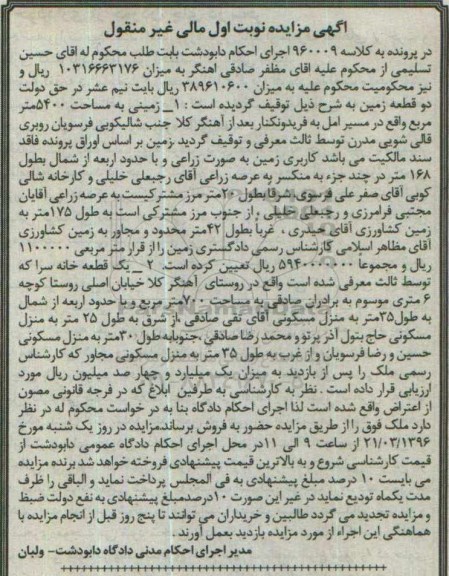 آگهی مزایده نوبت اول مالی غیر منقول
در پرونده به کلاسه ۹۶۰۰۰۹ اجرای احکام دابودشت بابت طلب محکوم له اقای حسین
تسلیمی از محکوم علیه اقای مظفر صادقی اهنگر به میزان ۱۰۳۱۶۶۶۳۱۷۶ ریال و
نیز محکومیت محکوم علیه به میزان ۳۸۹۶۱۰۶۰۰ ریال بایت نیم عشر در حق دولت
دو قطعه زمین به شرح ذیل توقیف گردیده است : ۱_ زمینی به مساحت ۵۴۰۰متر
مربع واقع در مسیر امل به فریدونکنار بعد از آهنگر کلا جنب شالیکوبی فرسویان روبری
قالی شویی مدرن توسط ثالث معرفی و توقیف گردید .زمین بر اساس اوراق پرونده فاقد
سند مالکیت می باشد کاربری زمین به صورت زراعی و با حدود اربعه از شمال بطول
۱۶۸ متر در چند جزء به منکسر به عرصه زراعی آقای رجبعلی خلیلی و کارخانه شالی
کوبی آقای صفر علی فرسوی شرقا بطول ۲۰متر مرز مشترکیست به عرصه زراعی آقایان
مجتبی فرامرزی و رجبعلی خلیلی ، از جنوب مرز مشترکی است به طول ۱۷۵متر به
زمین کشاورزی آقای حیدری ، غرباً بطول ۴۲متر محدود و مجاور به زمین کشاورزی
آقای مظاهر اسلامی کارشناس رسمی دادگستری زمین را از قرار متر مربعی ۱۱۰۰۰۰۰
ریال و مجموعاً ۵۹۴۰۰۰۰۰۰۰ ریال تعیین کرده است. ۲ _ یک قطعه خانه سرا که
توسط ثالث معرفی شده است واقع در روستای آهنگر کلا خیابان اصلی روستا کوچه
۶ متری موسوم به برادران صادقی به مساحت ۷۰۰متر مربع و با حدود اربعه از شمال
به طول۳۵متر به منزل مسکونی آقای نقی صادقی ،از شرق به طول ۲۵ متر به منزل
مسکونی حاج بتول آذر پرتو و محمد رضا صادقی .جنوبابه طول ۳۰متر به منزل مسکونی
حسین و رضا فرسویان و از غرب به طول ۳۵ متر به منزل مسکونی مجاور که کارشناس
رسمی ملک را پس از بازدید به میزان یک میلیارد و چهار صد میلیون ریال مورد
ارزیابی قرار داده است . نظر به کارشناسی به طرفین ابلاغ که در فرجه قانونی مصون
از اعتراض واقع شده است لذا اجرای احکام دادگاه بنا به در خواست محکوم له در نظر
دارد ملک فوق را از طریق مزایده حضور به فروش برساند.مزایده در روز یک شنبه مورخ
۲۱/۰۳/۱۳۹۶ از ساعت ۹ الی ۱۱در محل اجرای احکام دادگاه عمومی دابودشت از
قیمت کارشناسی شروع و به بالاترین قیمت پیشنهادی فروخته خواهد شد برنده مزایده
می بایست ۱۰ درصد مبلغ پیشنهادی به فی المجلس پرداخت نماید و الباقی را ظرف
مدت یکماه تودیع نماید در غیر این صورت ۱۰درصدمبلغ پیشنهادی به نفع دولت ضبط
و مزایده تجدید می گردد طالبین و خریداران می توانند تا پنج روز قبل از انجام مزایده با
هماهنگی این اجراء از مورد مزایده بازدید بعمل آورند .
مدیر اجرای احکام مدنی دادگاه دابودشت- ولیان